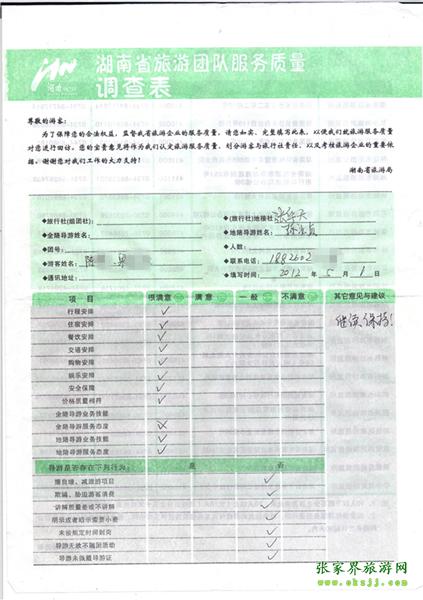 湖南省旅游团队服务质量
调查表
尊敬的游客：
为了保障您的合法权益，监督我省旅游企业的服务质量，请您如实、完整填写此表，以便我们就旅游服务质量
对您进行回访。您的宝贵意见将作为我们认定旅游服务质量、划分游客与旅行社责任、以及考核旅游企业的重要依
据。谢谢您对我们工作的大力支持！
湖南省旅游局
◆旅行社(组团社)：
◆(旅行社)地接社：
◆全陪导游姓名：
◆地陪导游姓名：
◆团号：
◆人数：
◆游客姓名：陈
◆联系电话：1882602
◆通讯地址：
◆填写时间：2012 年 5 月 1 日
项 目 很满意 满意 一般 不满意 其它意见与建议
行程安排 ✓
继续保持！
住宿安排 ✓
餐饮安排 ✓
交通安排 ✓
购物安排 ✓
娱乐安排 ✓
安全保障 ✓
价格质量相符 ✓
全陪导游业务技能
全陪导游服务态度
地陪导游业务技能 ✓
地陪导游服务态度 ✓
导游是否存在下列行为： 是 否
擅自增、减旅游项目 ✓
欺骗、胁迫游客消费 ✓
讲解质量差或不讲解 ✓
明示或者暗示索要小费 ✓
未按规定时间到岗 ✓
导游无故不随团活动 ✓
导游未佩戴导游证 ✓
张家界旅游网
www.okzjj.com